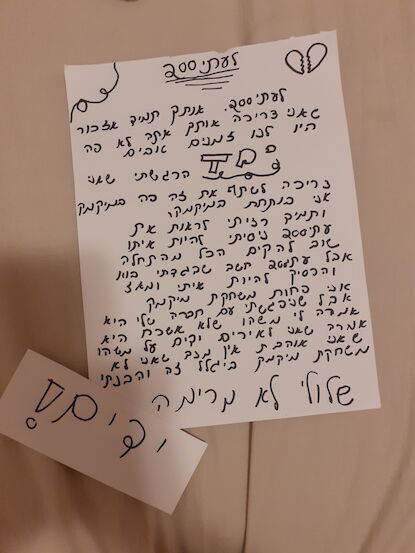 לעתי200
לעתי200. אותך תמיד אזכור
שאני צריכה אותך אתה לא פה
היו לנו זמנים טובים
הרגשתי שאני
צריכה לשתף את זה פה במיקמק
אני פותחת במיקמק
ותמיד רציתי לראות את
עתי200 ניסיתי להיות איתו
שוב להקים הכל מהתחלה
אבל עתי200 חשב שבגדתי בוא
והפסיק להיות איתי ומאז
אני פחות משחקת מיקמק
אבל שנפגשתי עם חברה שלי היא
אמרה לי משהו שלא אשכח היא
אמרה שאני לא ירים ידים על משהו
שאני אוהבת אין מצב שאני לא
משחקת מיקמק ביגלל זה והבנתי
שלולי לא מרימה
ידיים!